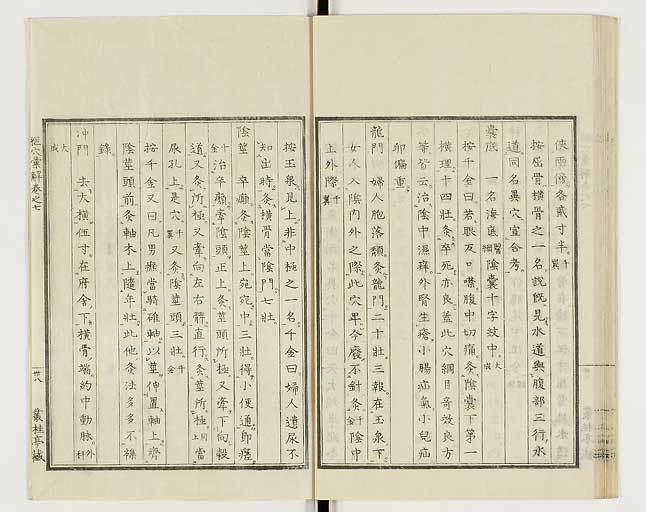 俠兩傍各貳寸半千翼
按屈骨橫骨之一名說既見水道與腹部三行水
道同名異穴宜合考
囊底 一名海底醫綱陰囊十字紋中大成
按千金曰若眼反口噤腹中切痛灸陰囊下第一
橫理十四壯灸卒死亦良蓋此穴綱目奇效良方
等皆云治陰中濕痒外腎生瘡小腸疝氣小兒疝
卵偏重
龍門 婦人胞落頹灸龍門二十壯三報在玉泉下
女人入陰內外之際此穴卑今廢不針灸千金陰中
上外際千翼
按玉泉見上非中極之一名千金曰婦人遺尿不
知出時灸橫骨當陰門七壯
陰莖 卒癲灸陰莖上宛宛中三壯得小便通即瘥
千金治卒癲灸陰頭正上灸莖頭所極又牽下向穀
道又灸所極又牽向左右髀直行灸莖所極上同當
尿孔上是穴千翼又灸陰莖頭三壯千金
按千金又曰凡男癲當騎碓軸以莖伸置軸上齊
陰莖頭前灸軸木上隨年壯此他灸法多多不襍
錄
沖門 去大橫伍寸在府舍下橫骨端約中動脉外科
大成
經穴彙解卷之七
卅八
叢桂亭藏